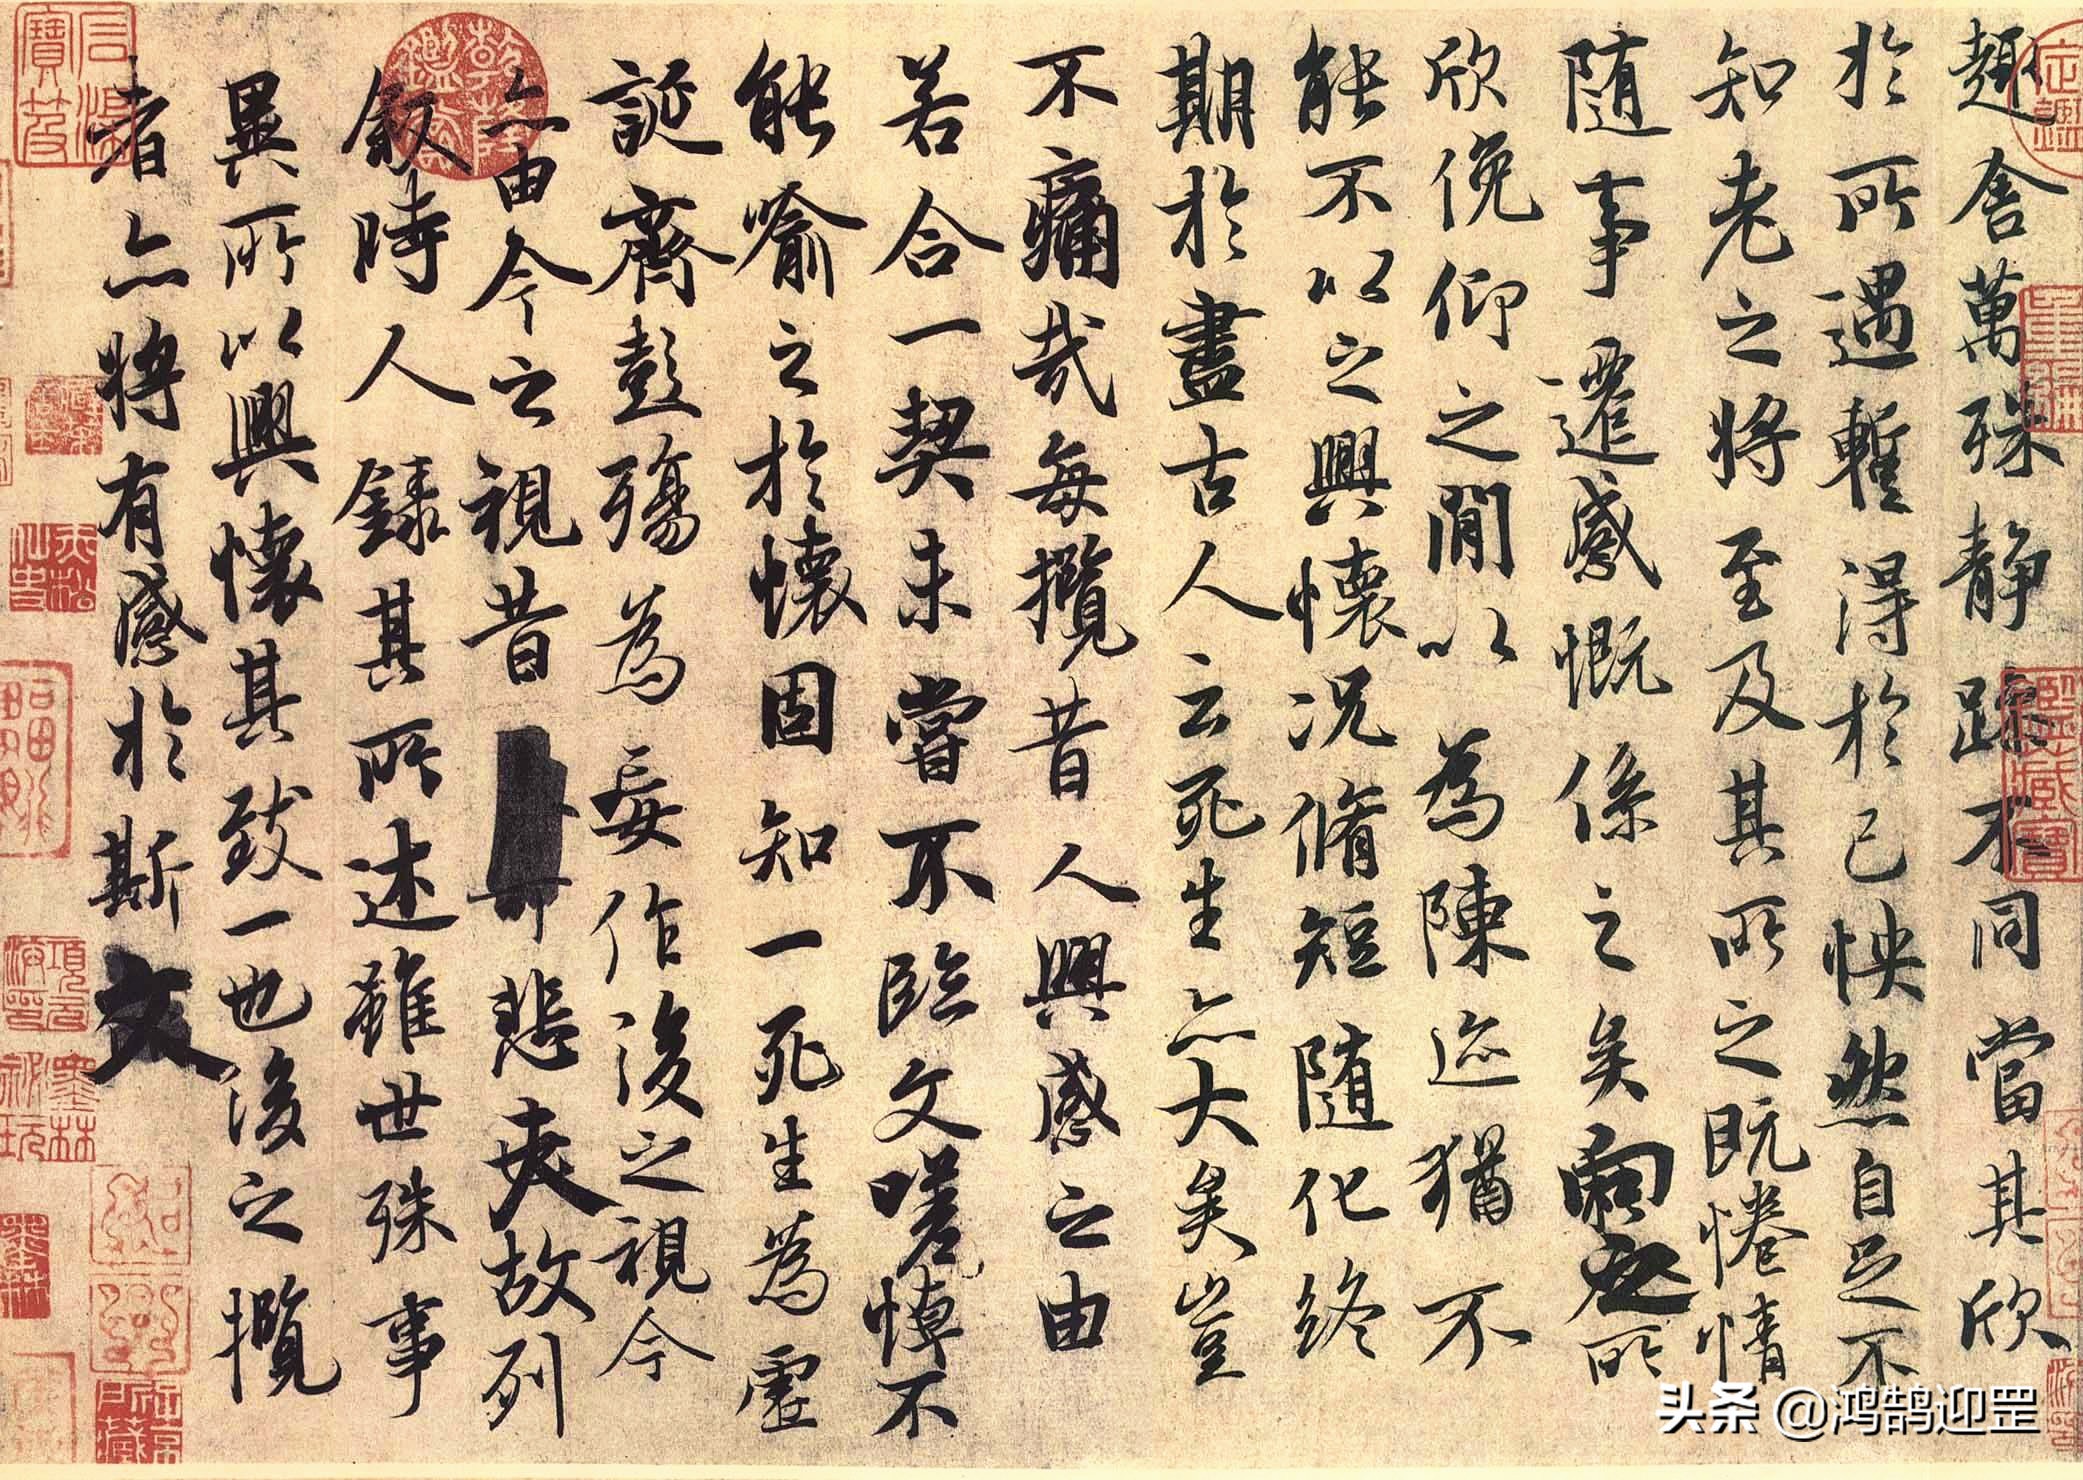 趣舍萬殊静躁不同當其欣
於所遇暫得於己怏然自足不
知老之将至及其所之既惓情
随事遷感慨係之矣向之所
欣俛仰之閒以為陳迹猶不
能不以之興懷況脩短随化終
期於盡古人云死生亦大矣豈
不痛哉每攬昔人興感之由
若合一契未嘗不臨文嗟悼不
能喻之於懷固知一死生為虛
誕齊彭殤為妄作後之視今
亦由今之視昔悲夫故列
敘時人錄其所述雖世殊事
異所以興懷其致一也後之攬
者亦将有感於斯文
頭条 @鸿鹄迎罡